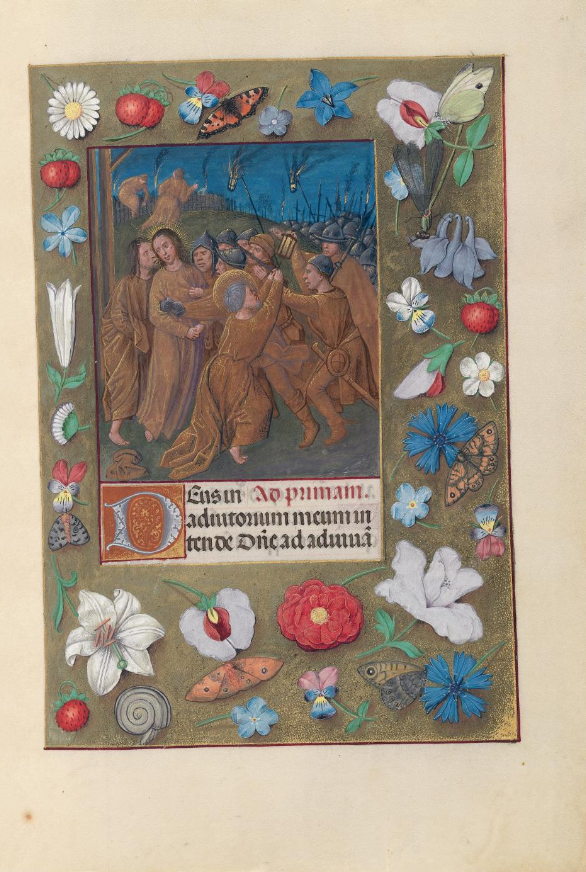 Deus in Ad primam.
adiutorium meum in
tende Dn̄e ad adiuuā